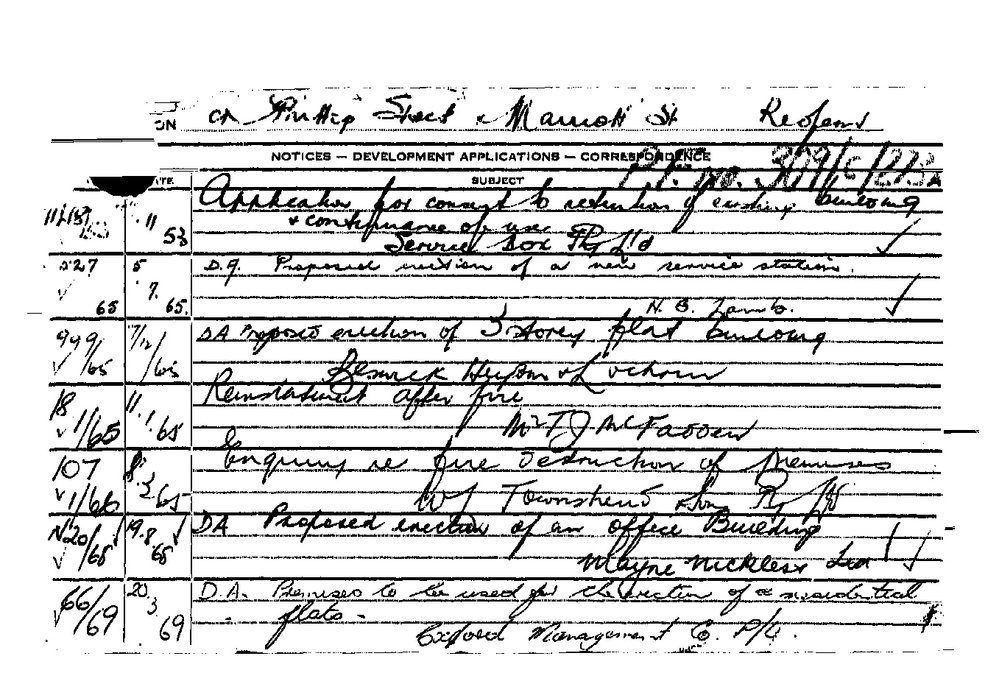 ON Cr Phillip Street & Marriott St Redfern
NOTICES — DEVELOPMENT APPLICATIONS — CORRESPONDENCE
P.F. no. 309/6/1223A
SUBJECT
Application for consent to retention of existing building
11 58 & continuance of use
Service Box Pty Ltd
527 5 D.A. Proposed erection of a new service station.
65 7. 65. N. B. Lamb.
999/65 7/12/65 DA Proposed erection of 3 storey flat building
Reinstatement after fire
18 1/65 11.1.65 Mr T J McFadden
107 Enquiry re fire destruction of Premises
1/66 WJ Townshend & Son P/L
N20/68 19.8.68 DA Proposed erection of an office Building
Mayne Nickless Ltd
66/69 20 3 69 D.A. Premises to be used for the erection of a residential
flats -
Management Co. P/L.